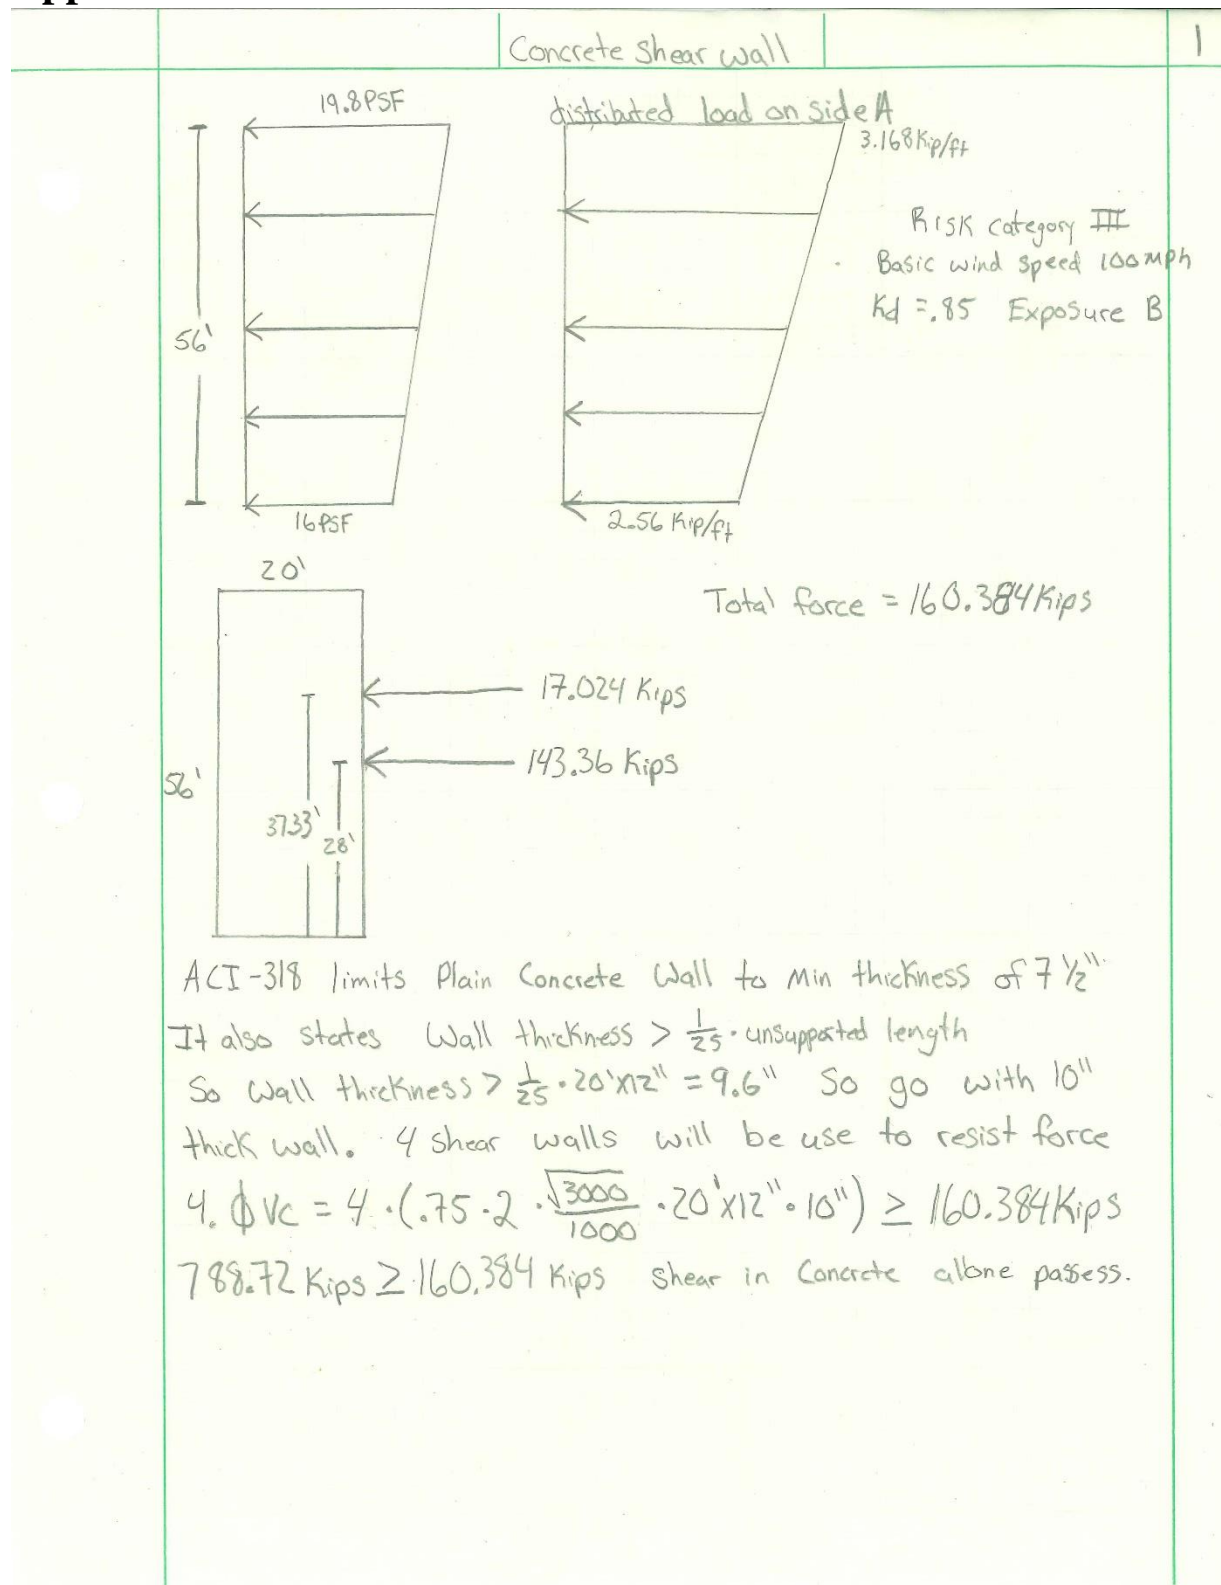 Concrete Shear Wall
1
19.8 PSF
distributed load on side A
3.168 Kip/ft
Risk category III
Basic wind speed 100 mph
Kd = .85 Exposure B
56'
16 PSF
2.56 Kip/ft
20'
Total force = 160.384 Kips
17.024 Kips
143.36 Kips
56'
37.33'
28'
ACI-318 limits Plain Concrete Wall to Min thickness of 7 1/2"
It also states Wall thickness > 1/25 · unsupported length
So Wall thickness > 1/25 · 20'x12" = 9.6" So go with 10"
thick wall. 4 shear walls will be use to resist force
4. ϕ Vc = 4 · (.75 · 2 · √3000/1000 · 20'x12" · 10") ≥ 160.384 Kips
788.72 Kips ≥ 160.384 Kips Shear in Concrete allone passess.